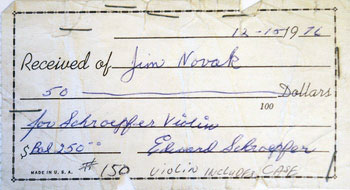 12-15 1976
Received of Jim Novak
50 Dollars
100
for Schroepfer Violin
$ Bal 250 00 Edward Schroepfer
MADE IN U.S.A. # 150 VIOLIN INCLUDES CASE